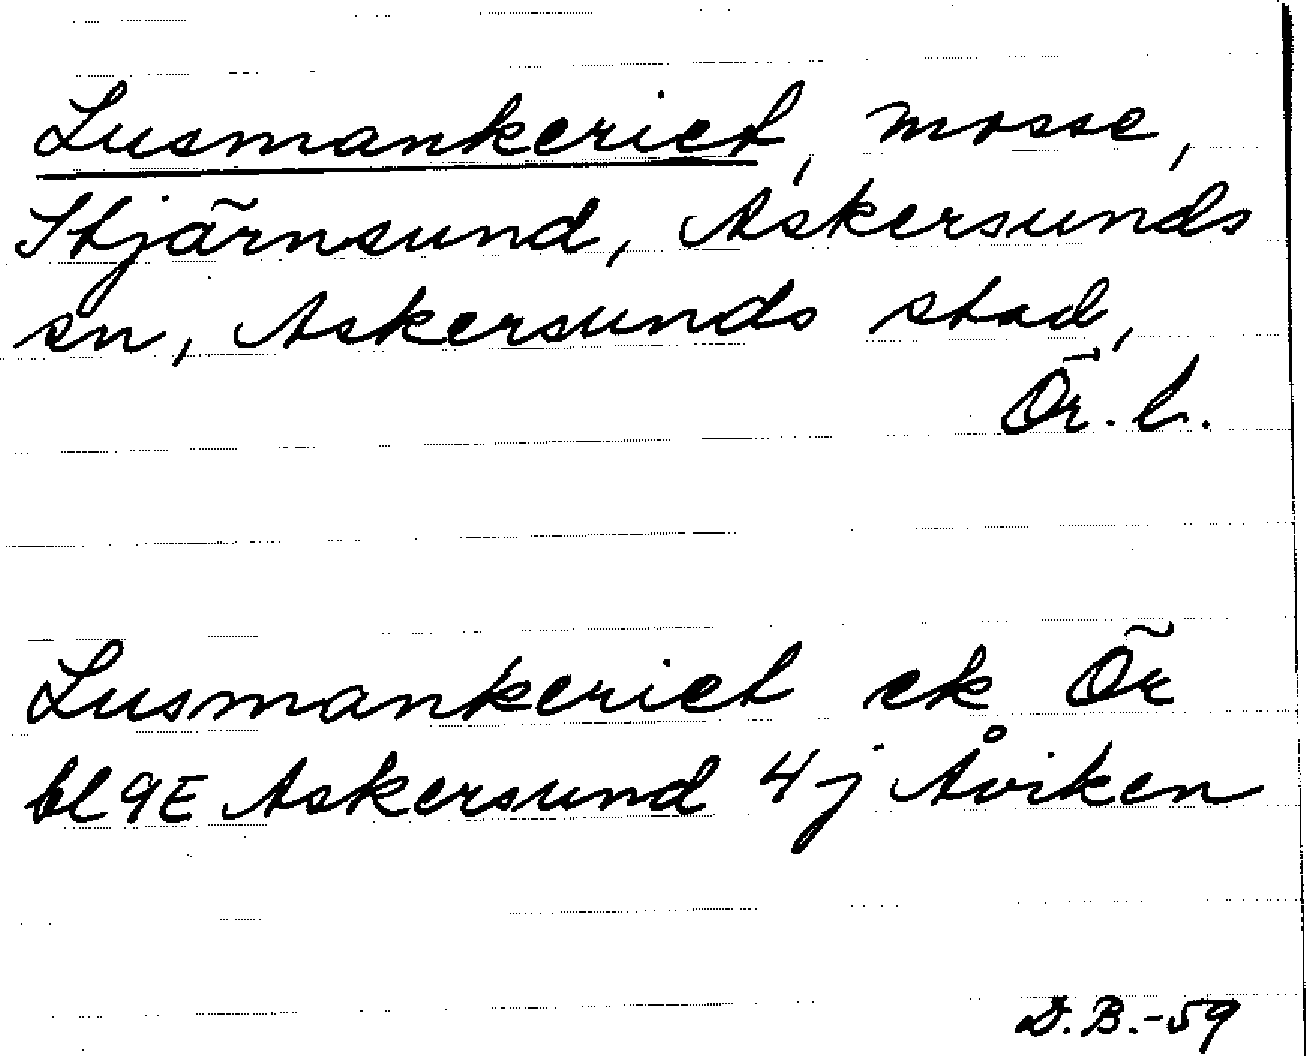 Lusmankeriet, mosse,
Stjärnsund, Askersunds
sn, Askersunds stad,
Ör. l.
Lusmankeriet ek Ör
bl 9E Askersund 4j Åviken
D.B.-59